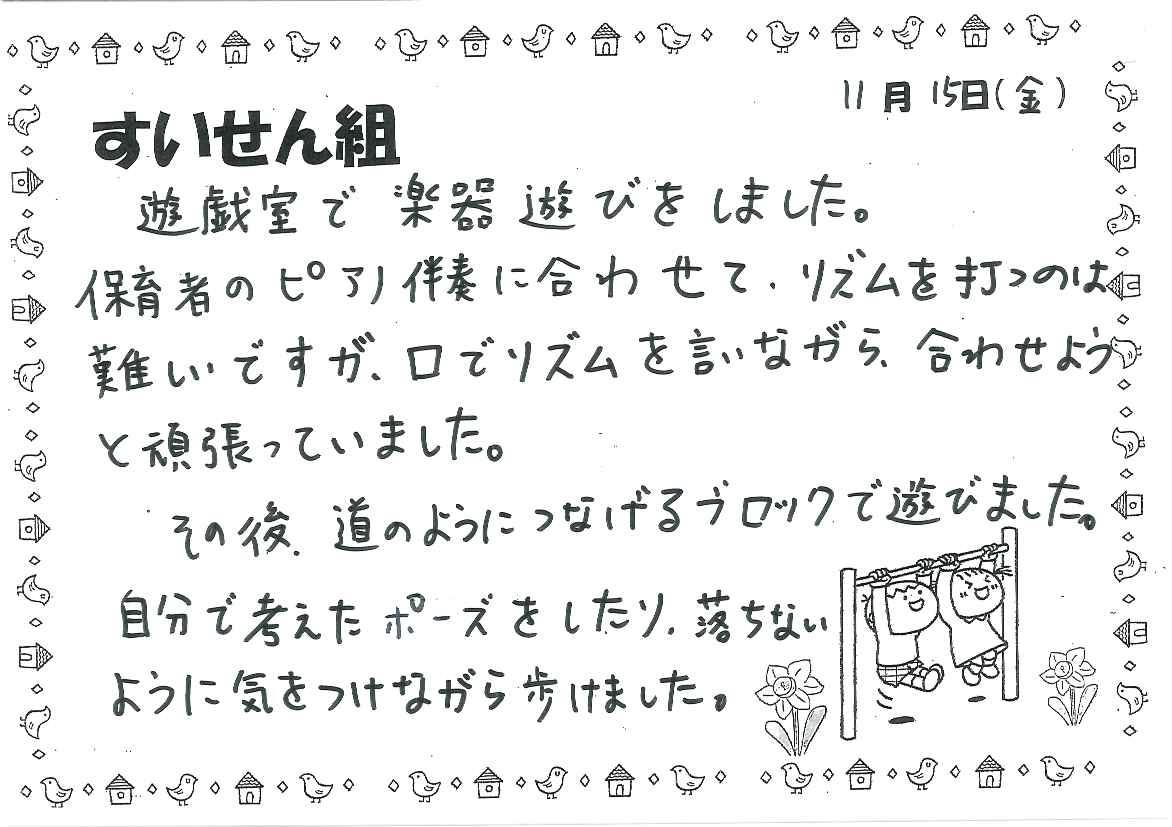 11月15日(金)
すいせん組
遊戯室で楽器遊びをしました。
保育者のピアノ伴奏に合わせて、リズムを打つのは
難しいですが、口でリズムを言いながら、合わせよう
と頑張っていました。
その後、道のようにつなげるブロックで遊びました。
自分で考えたポーズをしたり、落ちない
ように気をつけながら歩けました。